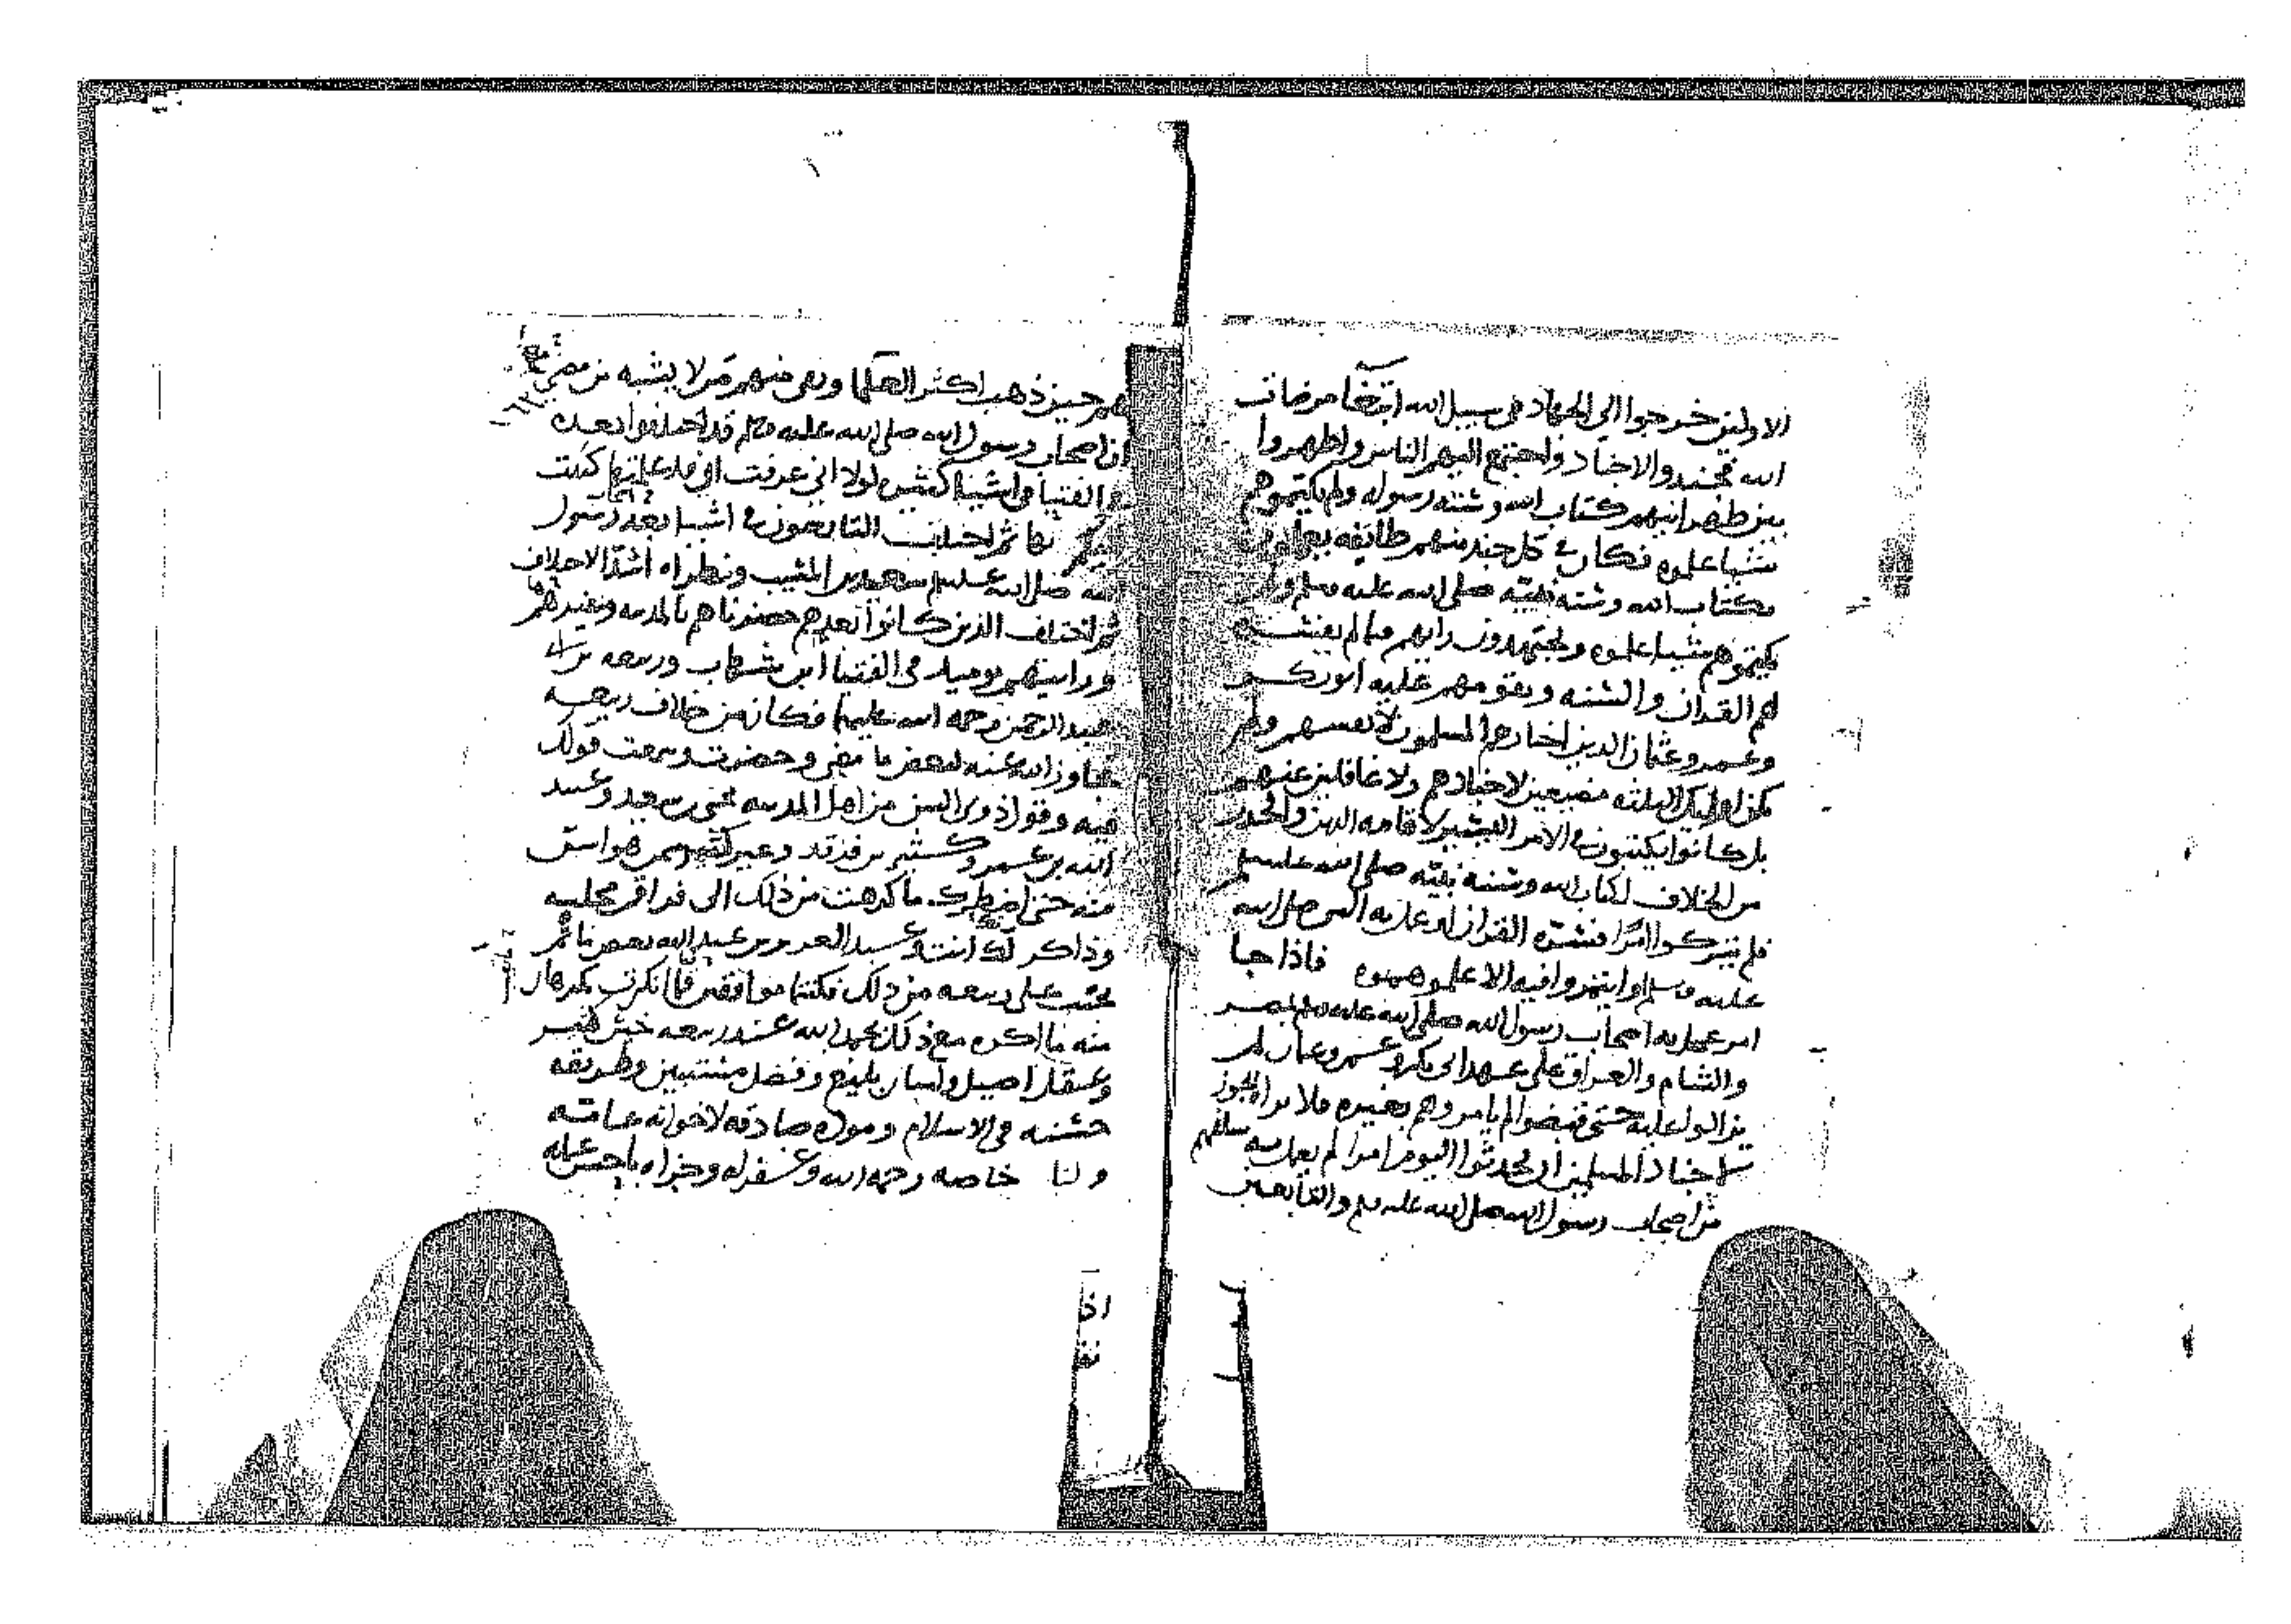 الاولين خرجوا الى الجهاد في سبيل الله ابتغا مرضات
الله فجندوا الاجناد واجتمع اليهم الناس واظهروا
بين ظهرانيهم كتاب الله وسنة رسوله ولم يكتموهم
شيا علموه فكان في كل جند منهم طائفه يعلمون
كتاب الله وسنه نبيه صلى الله عليه وسلم ولم
يكتموهم شيا علموه ويجتهدون رايهم فيما لم يفسره
لهم القران والسنه ويقومهم عليه ابو بكر
وعمر وعثمان الذين اختارهم المسلمون لانفسهم ولم
يكن اوليك الثلثه مضيعين لاجنادهم ولا غافلين عنهم
بل كانوا يكتبون في الامر اليسير لاقامه الدين والحذر
من الخلاف لكتاب الله وسنه نبيه صلى الله عليه وسلم
فلم يتركوا امرا فسره القران او عمل به النبي صلى الله
عليه وسلم او ايتمروا فيه الا علموهموه فاذا جا
امر عمل به اصحاب رسول الله صلى الله عليه وسلم بمصر
والشام والعراق على عهد ابي بكر وعمر وعثمان لم
يزالوا عليه حتى قبضوا لم يامروهم بغيره فلا نراه يجوز
لاجناد المسلمين ان يحدثوا اليوم امرا لم يعمل به سلفهم
من اصحاب رسول الله صلى الله عليه وسلم والتابعين
لهم حين ذهب اكثر العلما وبقي منهم من لا يشبه من مضى مع
ان اصحاب رسول الله صلى الله عليه وسلم قد اختلفوا بعده
في الفتيا في اشيا كثيره لولا اني عرفت ان قد علمتها كتبت
بها ثم اختلف التابعون في اشيا بعد رسول
الله صلى الله عليه وسلم سعيد بن المسيب ونظراه اشد الاختلاف
ثم اختلف الذين كانوا بعدهم حضرناهم بالمدينه وغيرها
وراسهم يوميذ في الفتيا ابن شهاب وربيعه بن ابي
عبد الرحمن رحمه الله عليهما فكان من خلاف ربيعه
تجاوز الله عنه لبعض ما مضى وحضرت وسمعت قولك
فيه وقول ذوي السن من اهل المدينه يحيى بن سعيد وعبيد
الله بن عمر وكثير بن فرقد وغير كثير ممن هو اسن
منه حتى اضطرك ما كرهت من ذلك الى فراق مجلسه
وذاكرتك انت وعبد العزيز بن عبد الله بعض ما
نعيب على ربيعه من ذلك فكنتما موافقين فيما انكرت تكرهان
منه ما اكره مع ذلك بحمد الله عند ربيعه خير كثير
وعقل اصيل ولسان بليغ وفضل مستبين وطريقه
حسنه في الاسلام وموده صادقه لاخوانه عامه
ولنا خاصه رحمه الله وغفر له وجزاه باحسن عمله